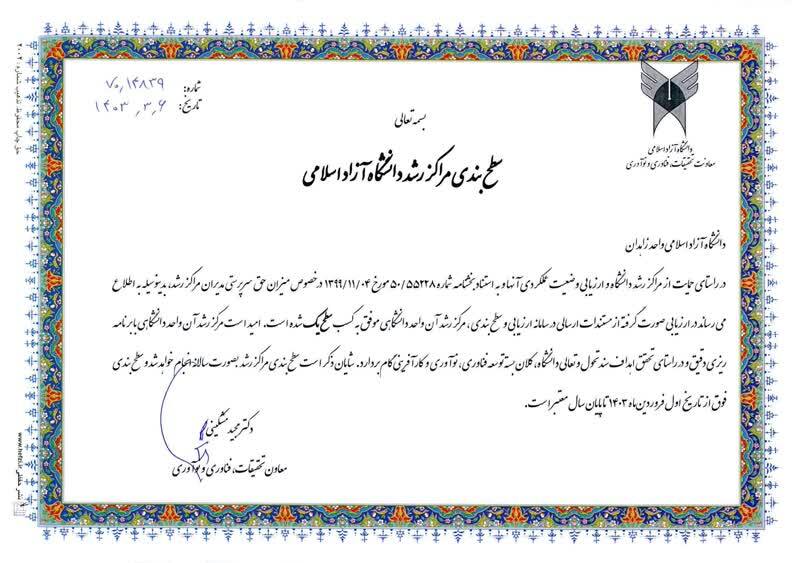 شماره: ۷۰,۱۴۸۳۹
تاریخ: ۱۴۰۳,۳,۶
بسمه تعالی
دانشگاه آزاد اسلامی
معاونت تحقیقات، فناوری و نوآوری
سطح بندی مراکز رشد دانشگاه آزاد اسلامی
دانشگاه آزاد اسلامی واحد زاهدان
در راستای حمایت از مراکز رشد دانشگاه و ارزیابی وضعیت عملکردی آنها و به استناد بخشنامه شماره ۵۰/۵۵۲۲۸ مورخ ۱۳۹۹/۱۱/۰۴ در خصوص میزان حق سرپرستی مدیران مراکز رشد، بدینوسیله به اطلاع
می رساند در ارزیابی صورت گرفته از مستندات ارسالی در سامانه ارزیابی و سطح بندی، مرکز رشد آن واحد دانشگاهی موفق به کسب سطح یک شده است. امید است مرکز رشد آن واحد دانشگاهی با برنامه
ریزی دقیق و در راستای تحقق اهداف سند تحول و تعالی دانشگاه، کلان بسته توسعه فناوری، نوآوری و کارآفرینی گام بردارد. شایان ذکر است سطح بندی مراکز رشد بصورت سالانه انجام خواهد شد و سطح بندی
فوق از تاریخ اول فروردین ماه ۱۴۰۳ تا پایان سال معتبر است.
دکتر مجید مشکینی
معاون تحقیقات، فناوری و نوآوری